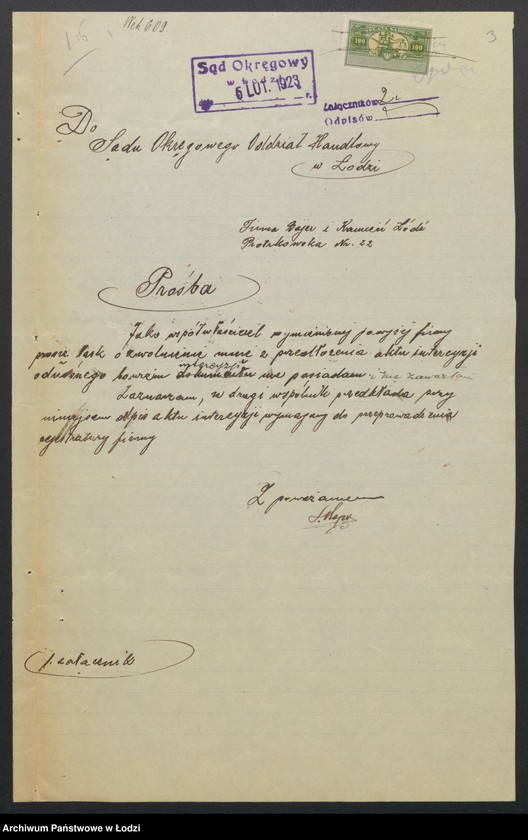 Wch 609.
3
Sąd Okręgowy
w Łodzi
6 LUT. 1923
100 100
Załączników 2
Odpisów
Do
Sądu Okręgowego Oddział Handlowy
w Łodzi
Firma Bajer i Kamień Łódź
Piotrkowska Nr. 22
Prośba
Jako współwłaściciel wymienionej powyżej firmy
proszę o zwolnienie mnie z przedłożenia aktu intercyzji
intercyzji
dokumentu nie posiadam i nie zawarłem
Zaznaczam, że drugi wspólnik przedkłada przy
niniejszem odpis aktu intercyzji wymagany do przeprowadzenia
rejestratury firmy
Z poważaniem
1 załącznik
Archiwum Państwowe w Łodzi